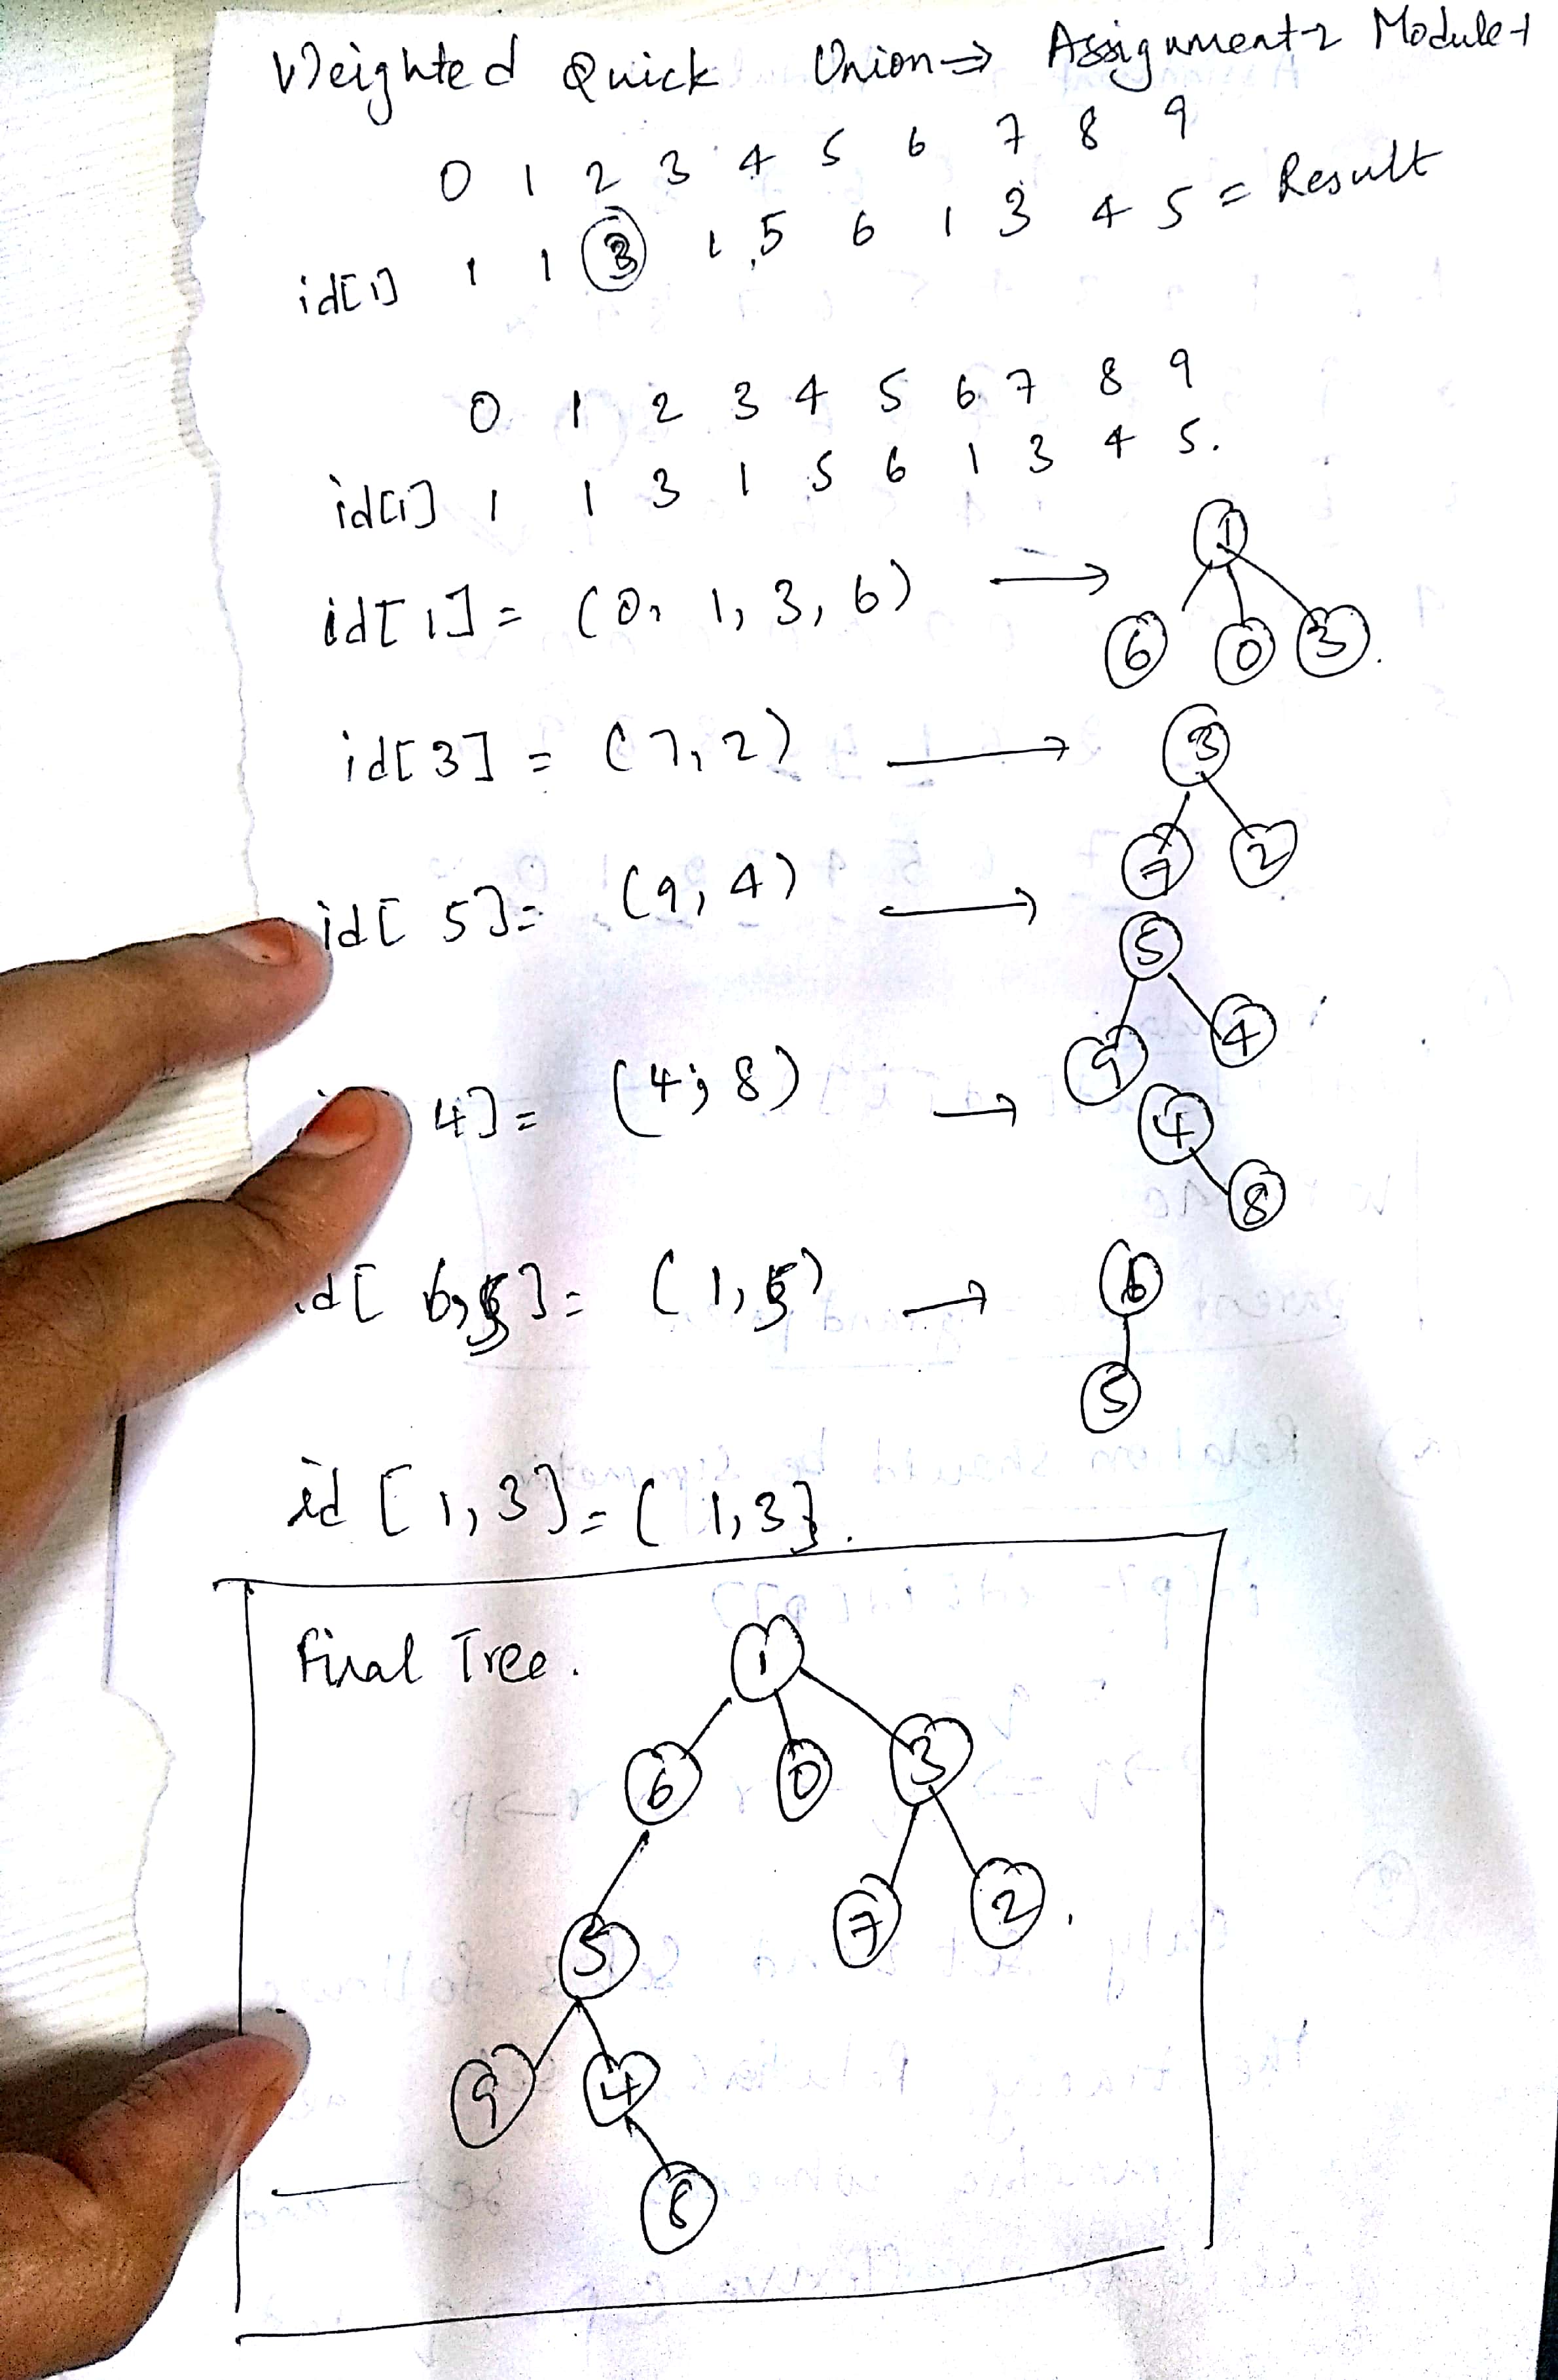 Weighted Quick Union ⇒ Assignment-2 Module-1
0 1 2 3 4 5 6 7 8 9
id[i] 1 1 3 1 5 6 1 3 4 5 = Result
0 1 2 3 4 5 6 7 8 9
id[i] 1 1 3 1 5 6 1 3 4 5.
id[1] = (0, 1, 3, 6) → 1
6 0 3
id[3] = (7, 2) → 3
7 2
id[5] = (9, 4) → 5
9 4
4] = (4, 8) → 4
8
id[6,5] = (1,5) → 6
5
id [1,3] = (1,3}.
Final Tree.
1
6 0 3
5 7 2
9 4
8